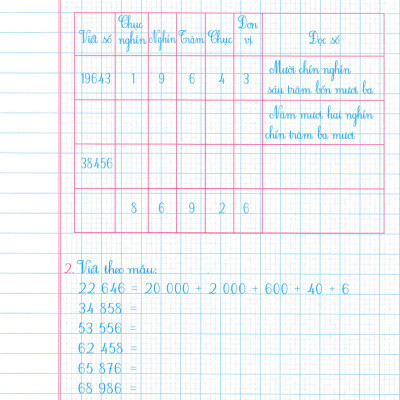 Viết số Chục nghìn Nghìn Trăm Chục Đơn vị Đọc số
19643 1 9 6 4 3 Mười chín nghìn
sáu trăm bốn mươi ba
Năm mươi hai nghìn
chín trăm ba mươi
38456
8 6 9 2 6
2. Viết theo mẫu:
22 646 = 20 000 + 2 000 + 600 + 40 + 6
34 858 =
53 556 =
62 458 =
65 876 =
68 986 =